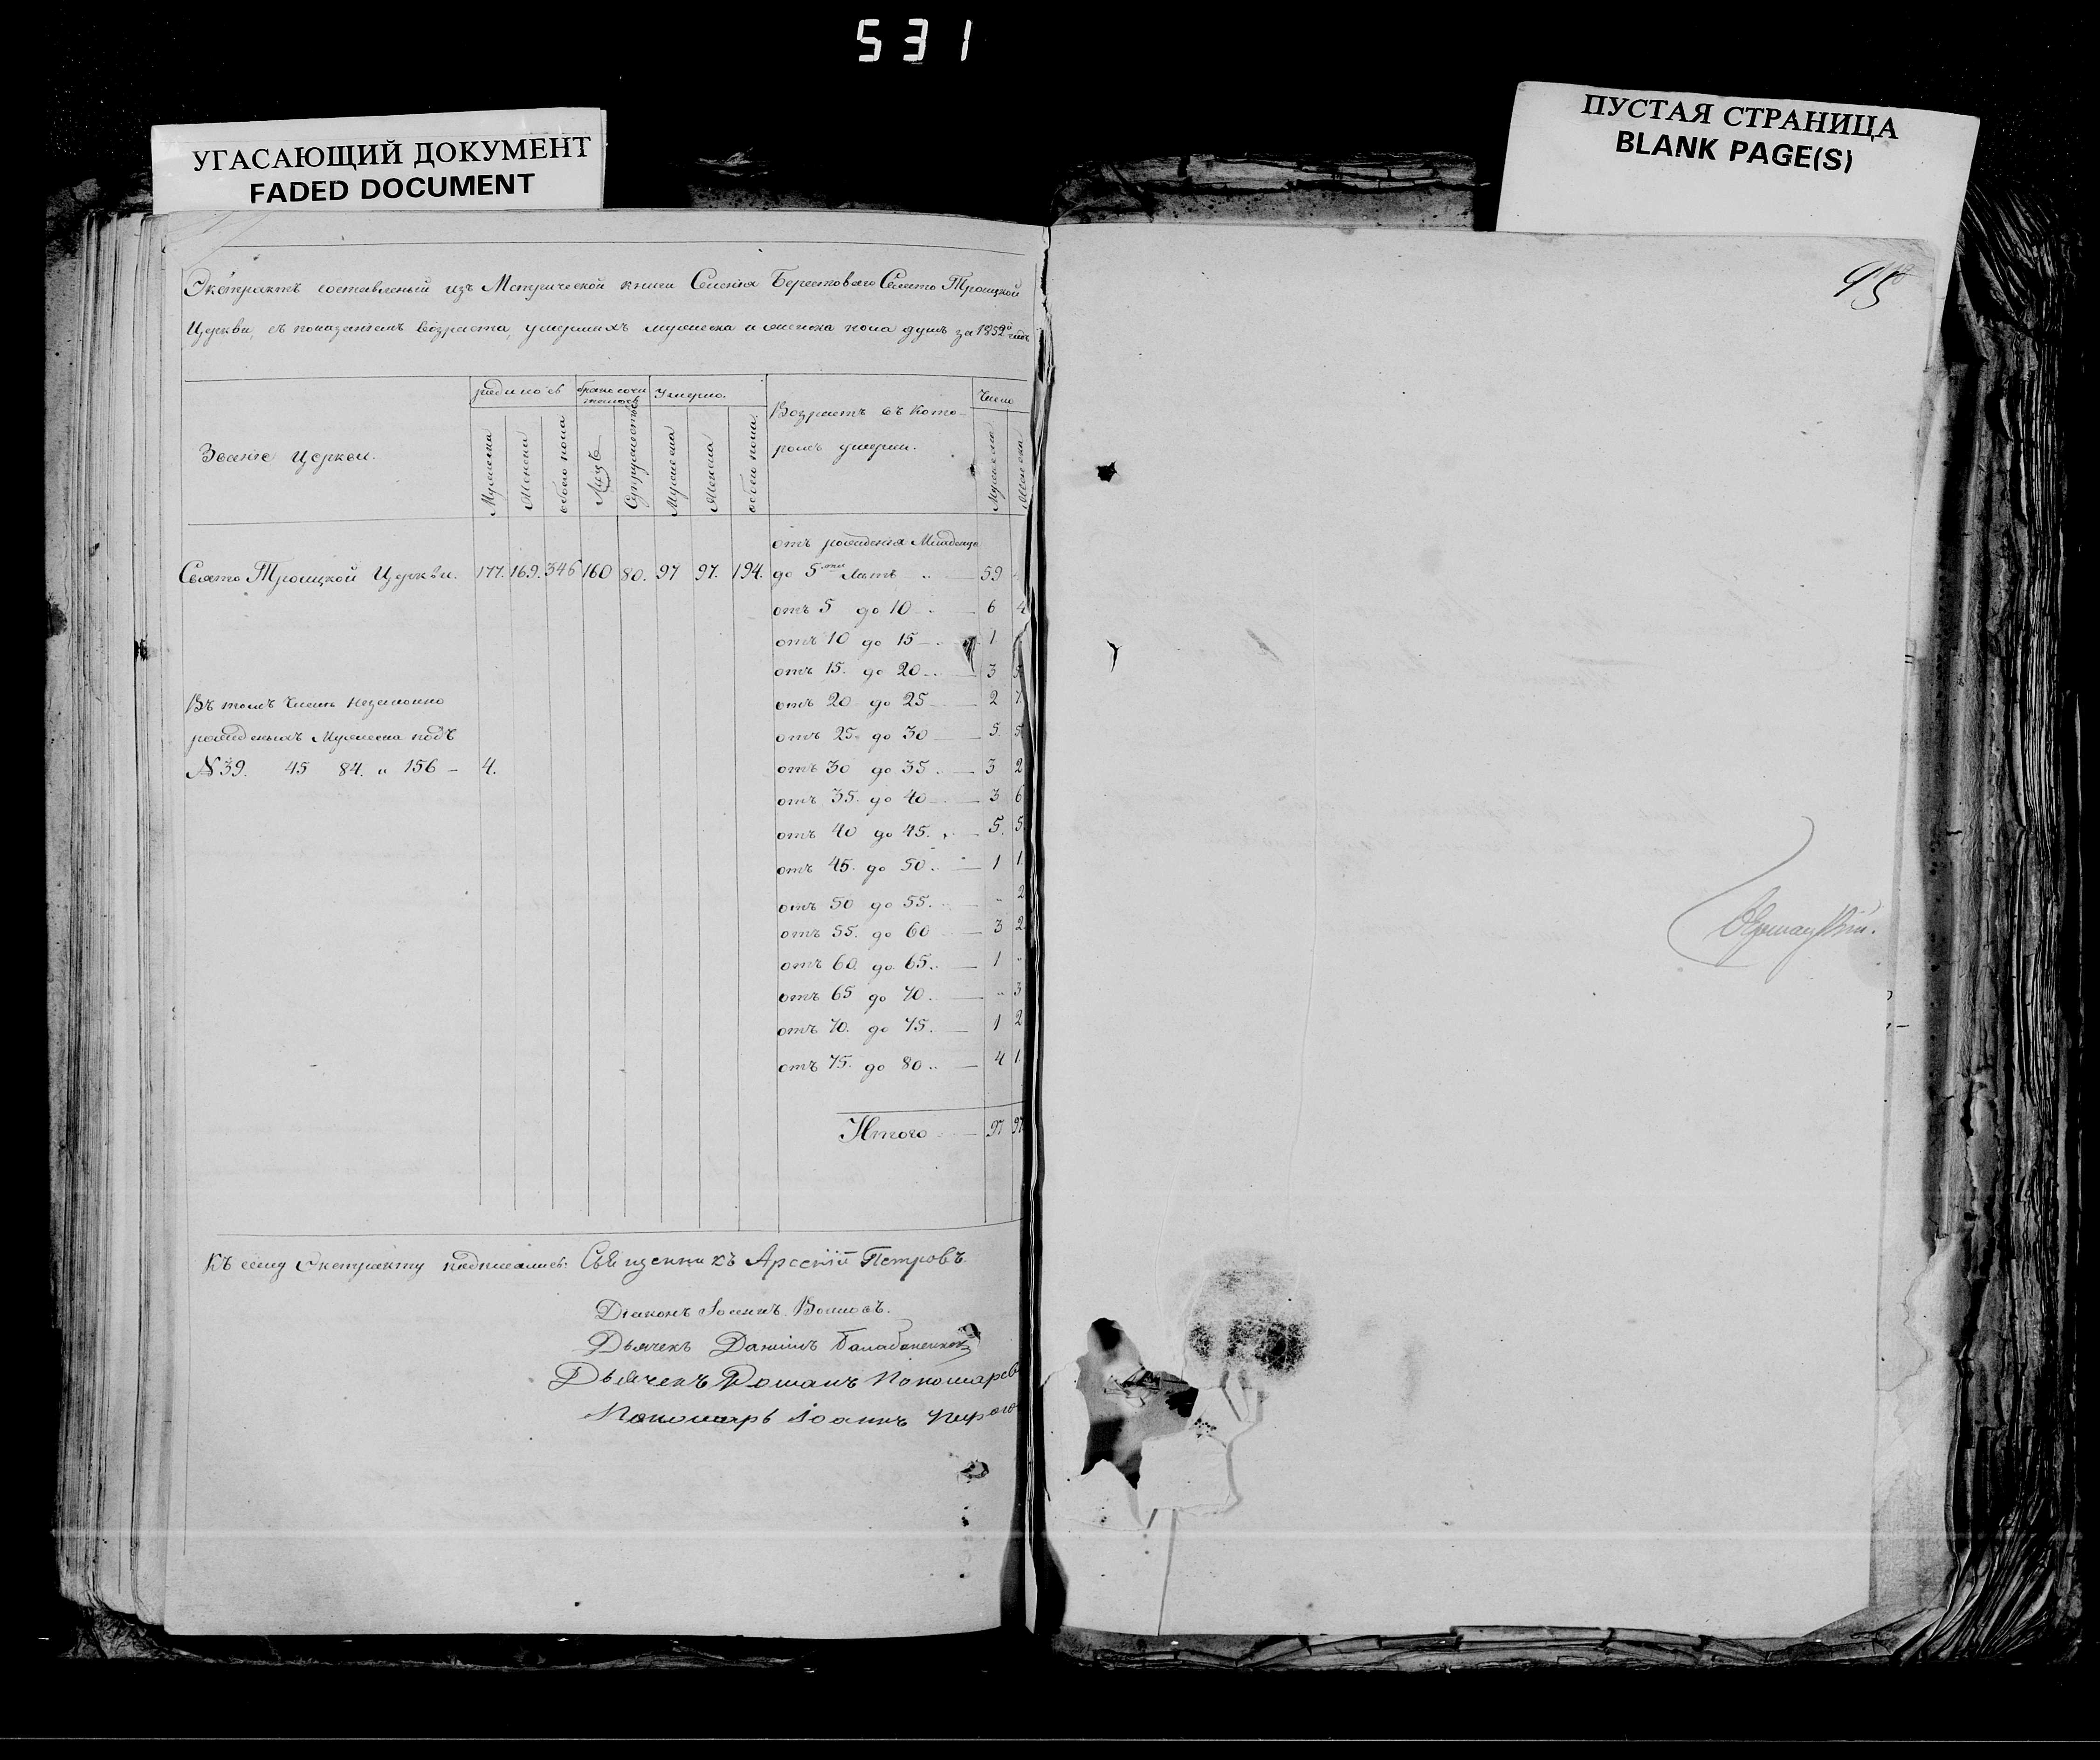 531
УГАСАЮЩИЙ ДОКУМЕНТ
FADED DOCUMENT
ПУСТАЯ СТРАНИЦА
BLANK PAGE(S)
Экстрактъ составленый изъ Метрической книги Селенія Берестоваго Свято Троицкой
Церкви, съ показаніемъ возраста, умершихъ мужеска и женска пола душъ за 1852й годъ
родилось
Умерло.
Число
Возрастъ въ кото-
ромъ умерли.
Званіе Церкви.
Мужеска
Женска
обоего пола
Лицъ
Супружествъ
Мужеска
Женска
обоего пола
Мужеска
Женска
отъ рожденія Младенца
Свято Троицкой Церкви. 177. 169. 346 160 80. 97 97. 194. до 5 лѣтъ 59
отъ 5 до 10 6 4
отъ 10 до 15 1
отъ 15. до 20 3 5
отъ 20 до 25 2 7
отъ 25. до 30 5. 5
отъ 30 до 35 3 2
отъ 35. до 40 3 6
отъ 40 до 45. 5. 5
отъ 45. до 50 1 1
отъ 50 до 55. " 2
отъ 55. до 60 3 2
отъ 60. до 65. 1 "
отъ 65 до 70. " 3
отъ 70. до 75. 1 2
отъ 75. до 80 4 1
Итого 97 97
Въ томъ числѣ незаконно
рожденыхъ Мужеска подъ
№ 39. 45 84. " 156 — 4.
Къ сему Экстракту подписались: Священникъ Арсеній Петровъ.
Діаконъ Іосифъ
Дьячекъ Даніилъ
Дьячекъ Романъ Пономарев
Пономарь Іоаннъ